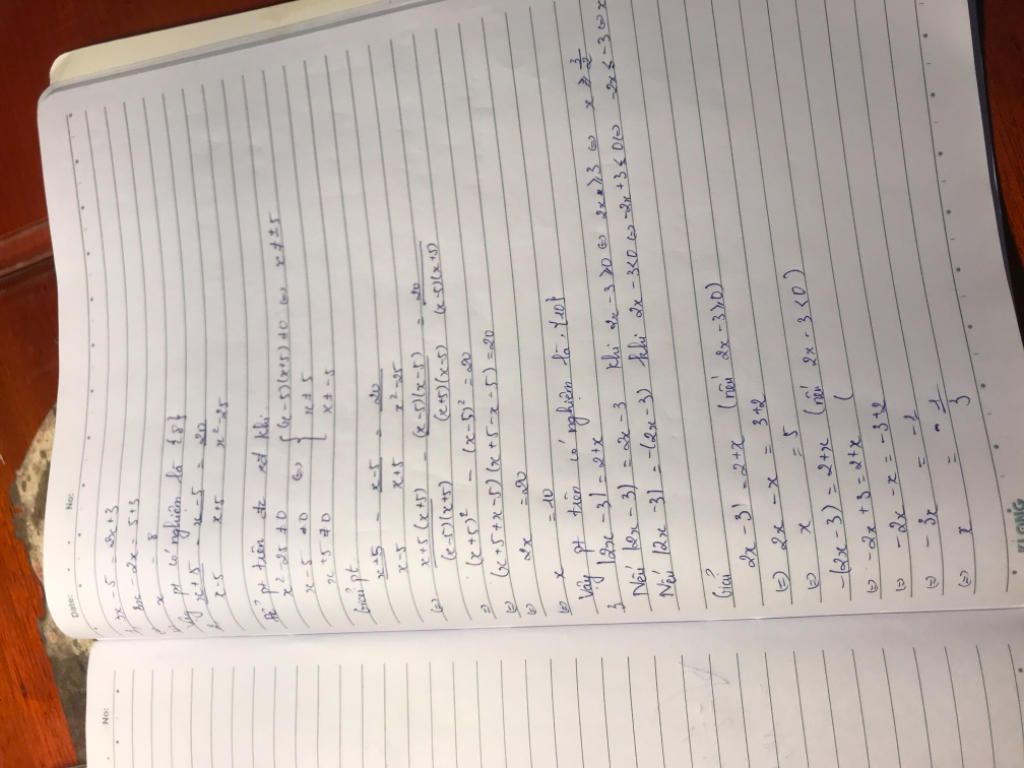 Date: No:
3x - 5 = 2x + 3
3x - 2x = 5 + 3
x = 8
Vậy pt có nghiệm là {8}
x+5/x-5 - x-5/x+5 = 20/x²-25
Để pt trên đc xđ khi:
x² - 25 ≠ 0 ⇔ { (x-5)(x+5) ≠ 0 ⇔ x ≠ ±5
x - 5 ≠ 0 x ≠ 5
x + 5 ≠ 0 x ≠ -5
Giải pt
x+5/x-5 - x-5/x+5 = 20/x²-25
⇔ x+5(x+5)/(x-5)(x+5) - (x-5)(x-5)/(x+5)(x-5) = 20/(x-5)(x+5)
⇔ (x+5)² - (x-5)² = 20
⇔ (x+5+x-5)(x+5-x-5) = 20
⇔ 2x = 20
⇔ x = 10
Vậy pt trên có nghiệm là {10}
3 |2x - 3| = 2 + x
Nếu |2x - 3| = 2x - 3 khi 2x - 3 ≥ 0 ⇔ 2x ≥ 3 ⇔ x ≥ 3/2
Nếu |2x - 3| = -(2x - 3) khi 2x - 3 < 0 ⇔ -2x + 3 < 0 ⇔ -2x < -3 ⇔ x
Giải
2x - 3 = 2 + x (nếu 2x - 3 ≥ 0)
⇔ 2x - x = 3 + 2
⇔ x = 5
-(2x - 3) = 2 + x (nếu 2x - 3 < 0)
⇔ -2x + 3 = 2 + x (
⇔ -2x - x = -3 + 2
⇔ -3x = -1
⇔ x = 1/3
KLONG
No: